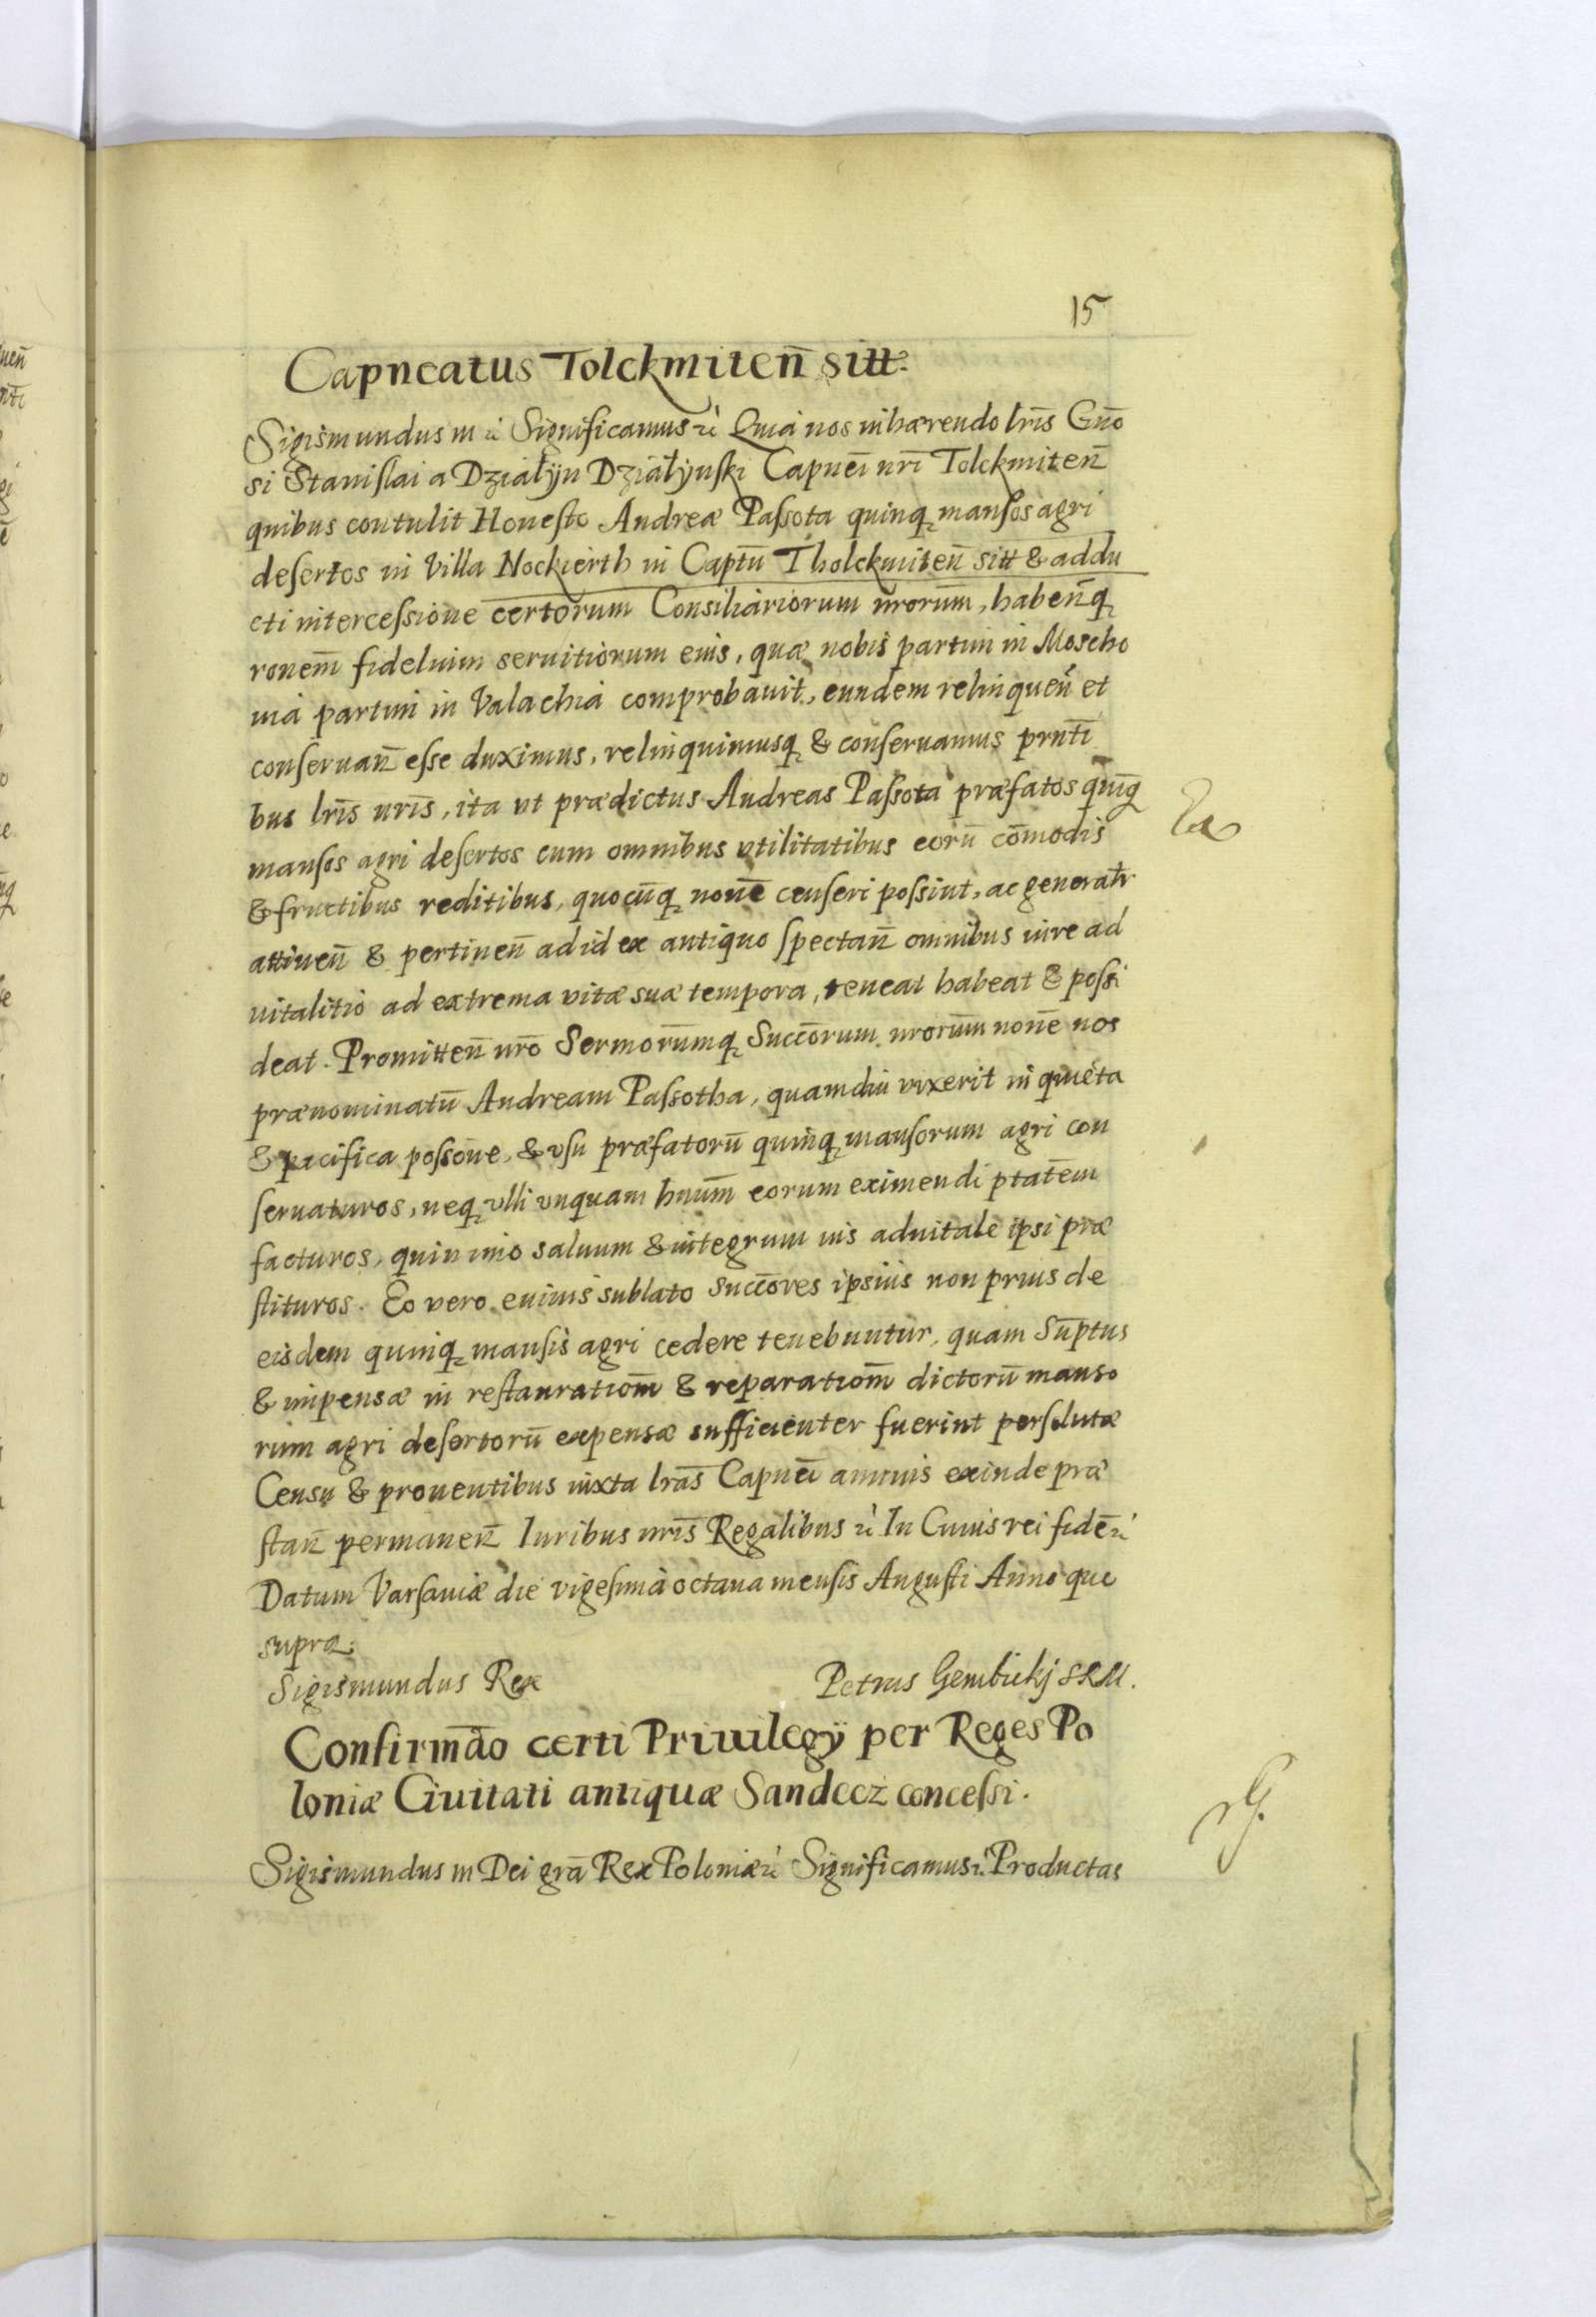 15
Capneatus Tolckmiten̄ sitt.
Sigismundus III ⁊c̀ Significamus ⁊c̀ Quia nos inhærendo lr̄is Gn̄o
si Stanislai a Dziáłÿn Dziáłÿnski Capnēi nr̄i Tolckmiten̄
quibus contulit Honesto Andreæ Passota quinq̨ mansos agri
desertos in Villa Nockierth in Captū Tholckmiten̄ sitt & addu
cti intercessione certorum Consiliariorum nr̄orum, haben̄q̨
ronem̄ fidelium seruitiorum eius, quæ nobis partim in Moscho
uia partim in Valachia comprobauit, eundem relinquen̄ et
conseruan̄ esse duximus, relinquimusq̨ & conseruamus prn̄ti
bus lr̄is nr̄is, ita vt prædictus Andreas Passota præfatos quīq̨
mansos agri desertos cum omnibus vtilitatibus eorū cōmodis
& fructibus reditibus, quocūq̨ noīe censeri possint, ac generatr̄
attinen̄ & pertinen̄ ad id ex antiquo spectan̄ omnibus iure ad
vitalitio ad extrema vitæ suæ tempora, teneat habeat & possi
deat. Promitten̄ nr̄o Sermorūmq̨ Succōrum nr̄orūm noīe nos
prænominatū Andream Passotha, quamdiu vixerit in quieta
& pacifica possōne, & vsu præfatorū quinq̨ mansorum agri con
seruaturos, neq̨ vlli vnquam hnūm eorum eximendi ptatēm
facturos, quin imo saluum & integrum ius aduitale ipsi præ
stituros. Eo vero e viuis sublato Succōres ipsius non prius de
eisdem quinq̨ mansis agri cedere tenebuntur, quam Sūptus
& impensæ in restaurationm̄ & reparationm̄ dictorū manso
rum agri desertorū expensæ sufficienter fuerint persolutæ
Censu & prouentibus iuxta lr̄as Capnēi annuis exinde præ
stan̄ permanen̄ Iuribus nr̄is Regalibus ⁊c̀ In Cuius rei fidē ⁊c̀
Datum Varsauiæ die vigesima octaua mensis Augusti Anno que
supra.
Sigismundus Rex Petrus Gembickj SRM.
Confirmāo certi Priuilegÿ per Reges Po
loniæ Ciuitati antiquæ Sandecz concessi.
Sigismundus III Dei grā Rex Poloniæ ⁊c̀ Significamus ⁊c̀ Productas